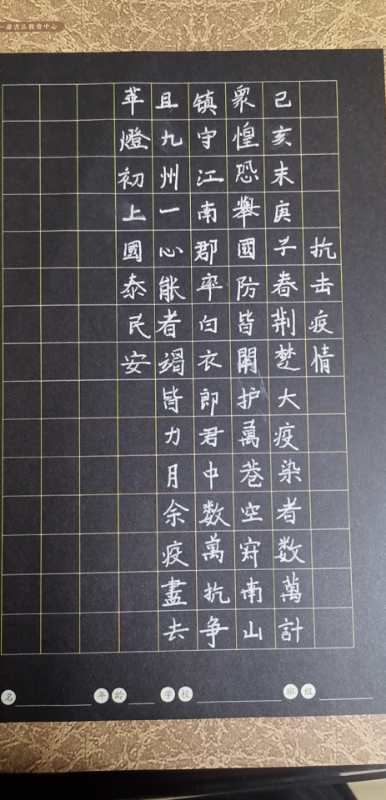 抗击疫情
己亥末庚子春荆楚大疫染者数萬計
衆惶恐舉國防皆閉护萬巷空南山
镇守江南郡率白衣郎君中数萬抗争
且九州一心能者竭皆力月余疫盡去
華燈初上國泰民安
書法教育中心
名 年龄 学校 班级